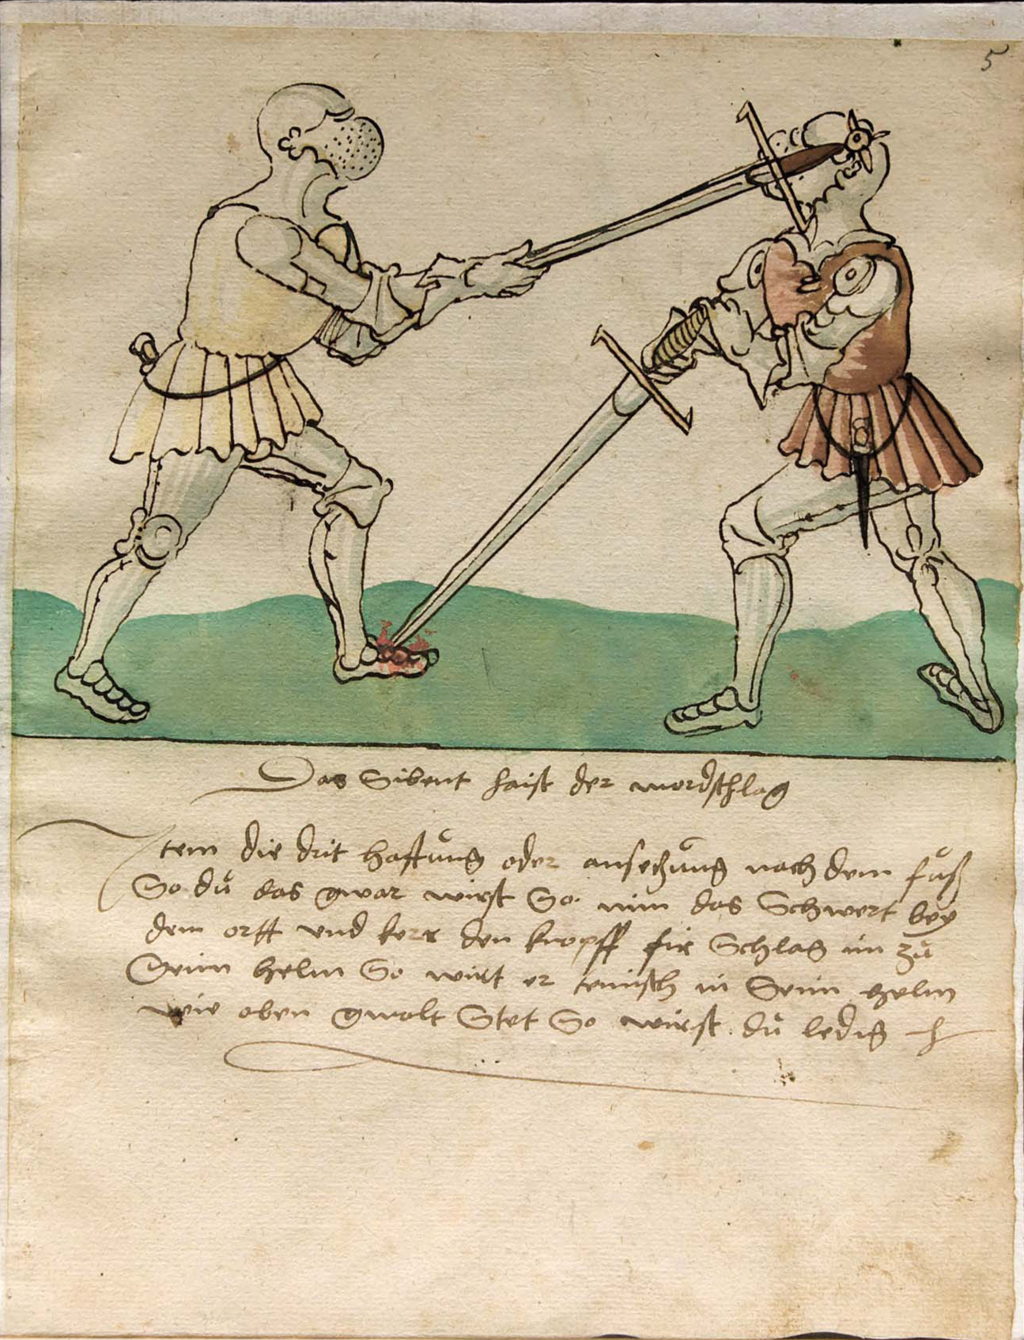 5
Das Sibent haist der mordschlag
Item die drit hafftung oder ansetzung nach dem fuß
So du das gwar wirst So nim das Schwert bey
dem ortt und kerr den knopff fir Schlag im zu
Seim helm So wirt er temisch in Seim helm
wie oben gmolt Stet So wirst du ledig